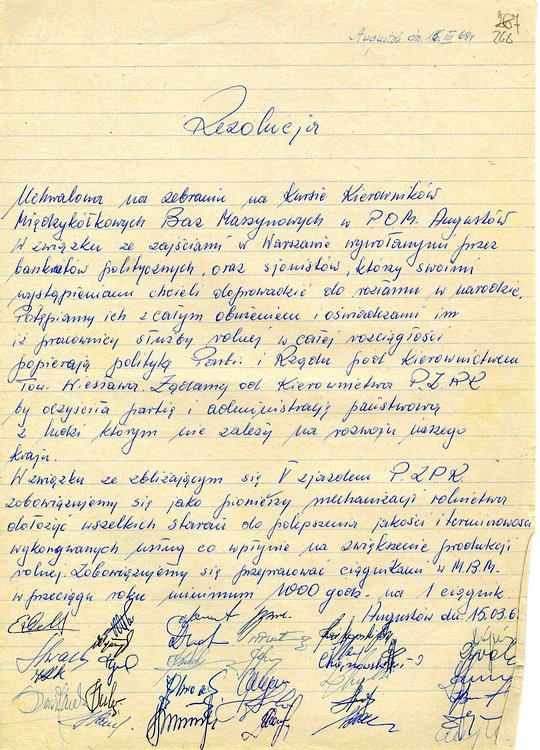 267
268
Augustów dn. 15 III 68r
Rezolucja
Uchwalona na zebraniu na Kursie Kierowników
Międzykółkowych Baz Maszynowych w P.O.M. Augustów
W związku ze zajściami w Warszawie wywołanymi przez
bankrutów politycznych, oraz sjonistów, którzy swoimi
wystąpieniami chcieli doprowadzić do rozłamu w narodzie.
Potępiamy ich z całym oburzeniem i oświadczamy im
iż pracownicy służby rolnej w całej rozciągłości
popierają politykę Partii i Rządu pod kierownictwem
Tow. Wiesława. Żądamy od kierownictwa P.Z.P.R
by oczyściła partię i administrację państwową
z ludzi którym nie zależy na rozwoju naszego
kraju.
W związku ze zbliżającym się V zjazdem P.Z.P.R.
zobowiązujemy się jako pionierzy mechanizacji rolnictwa
dołożyć wszelkich starań do polepszenia jakości i terminowości
wykonywanych usług co wpłynie na zwiększenie produkcji
rolnej. Zobowiązujemy się przepracować ciągnikami w M.B.M.
w przeciągu roku minimum 1000 godz. na 1 ciągnik
Augustów dn. 15.03.6